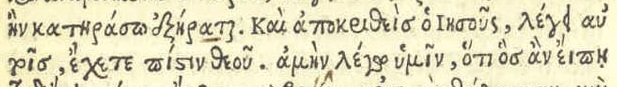 ἣν κατηράσω ἐξήραται. Καὶ ἀποκριθεὶς ὁ Ιησοῦς, λέγει αὐ
τοῖς, ἔχετε πίστιν θεοῦ. ἀμὴν λέγω ὑμῖν, ὅτι ὃς ἂν εἴπῃ